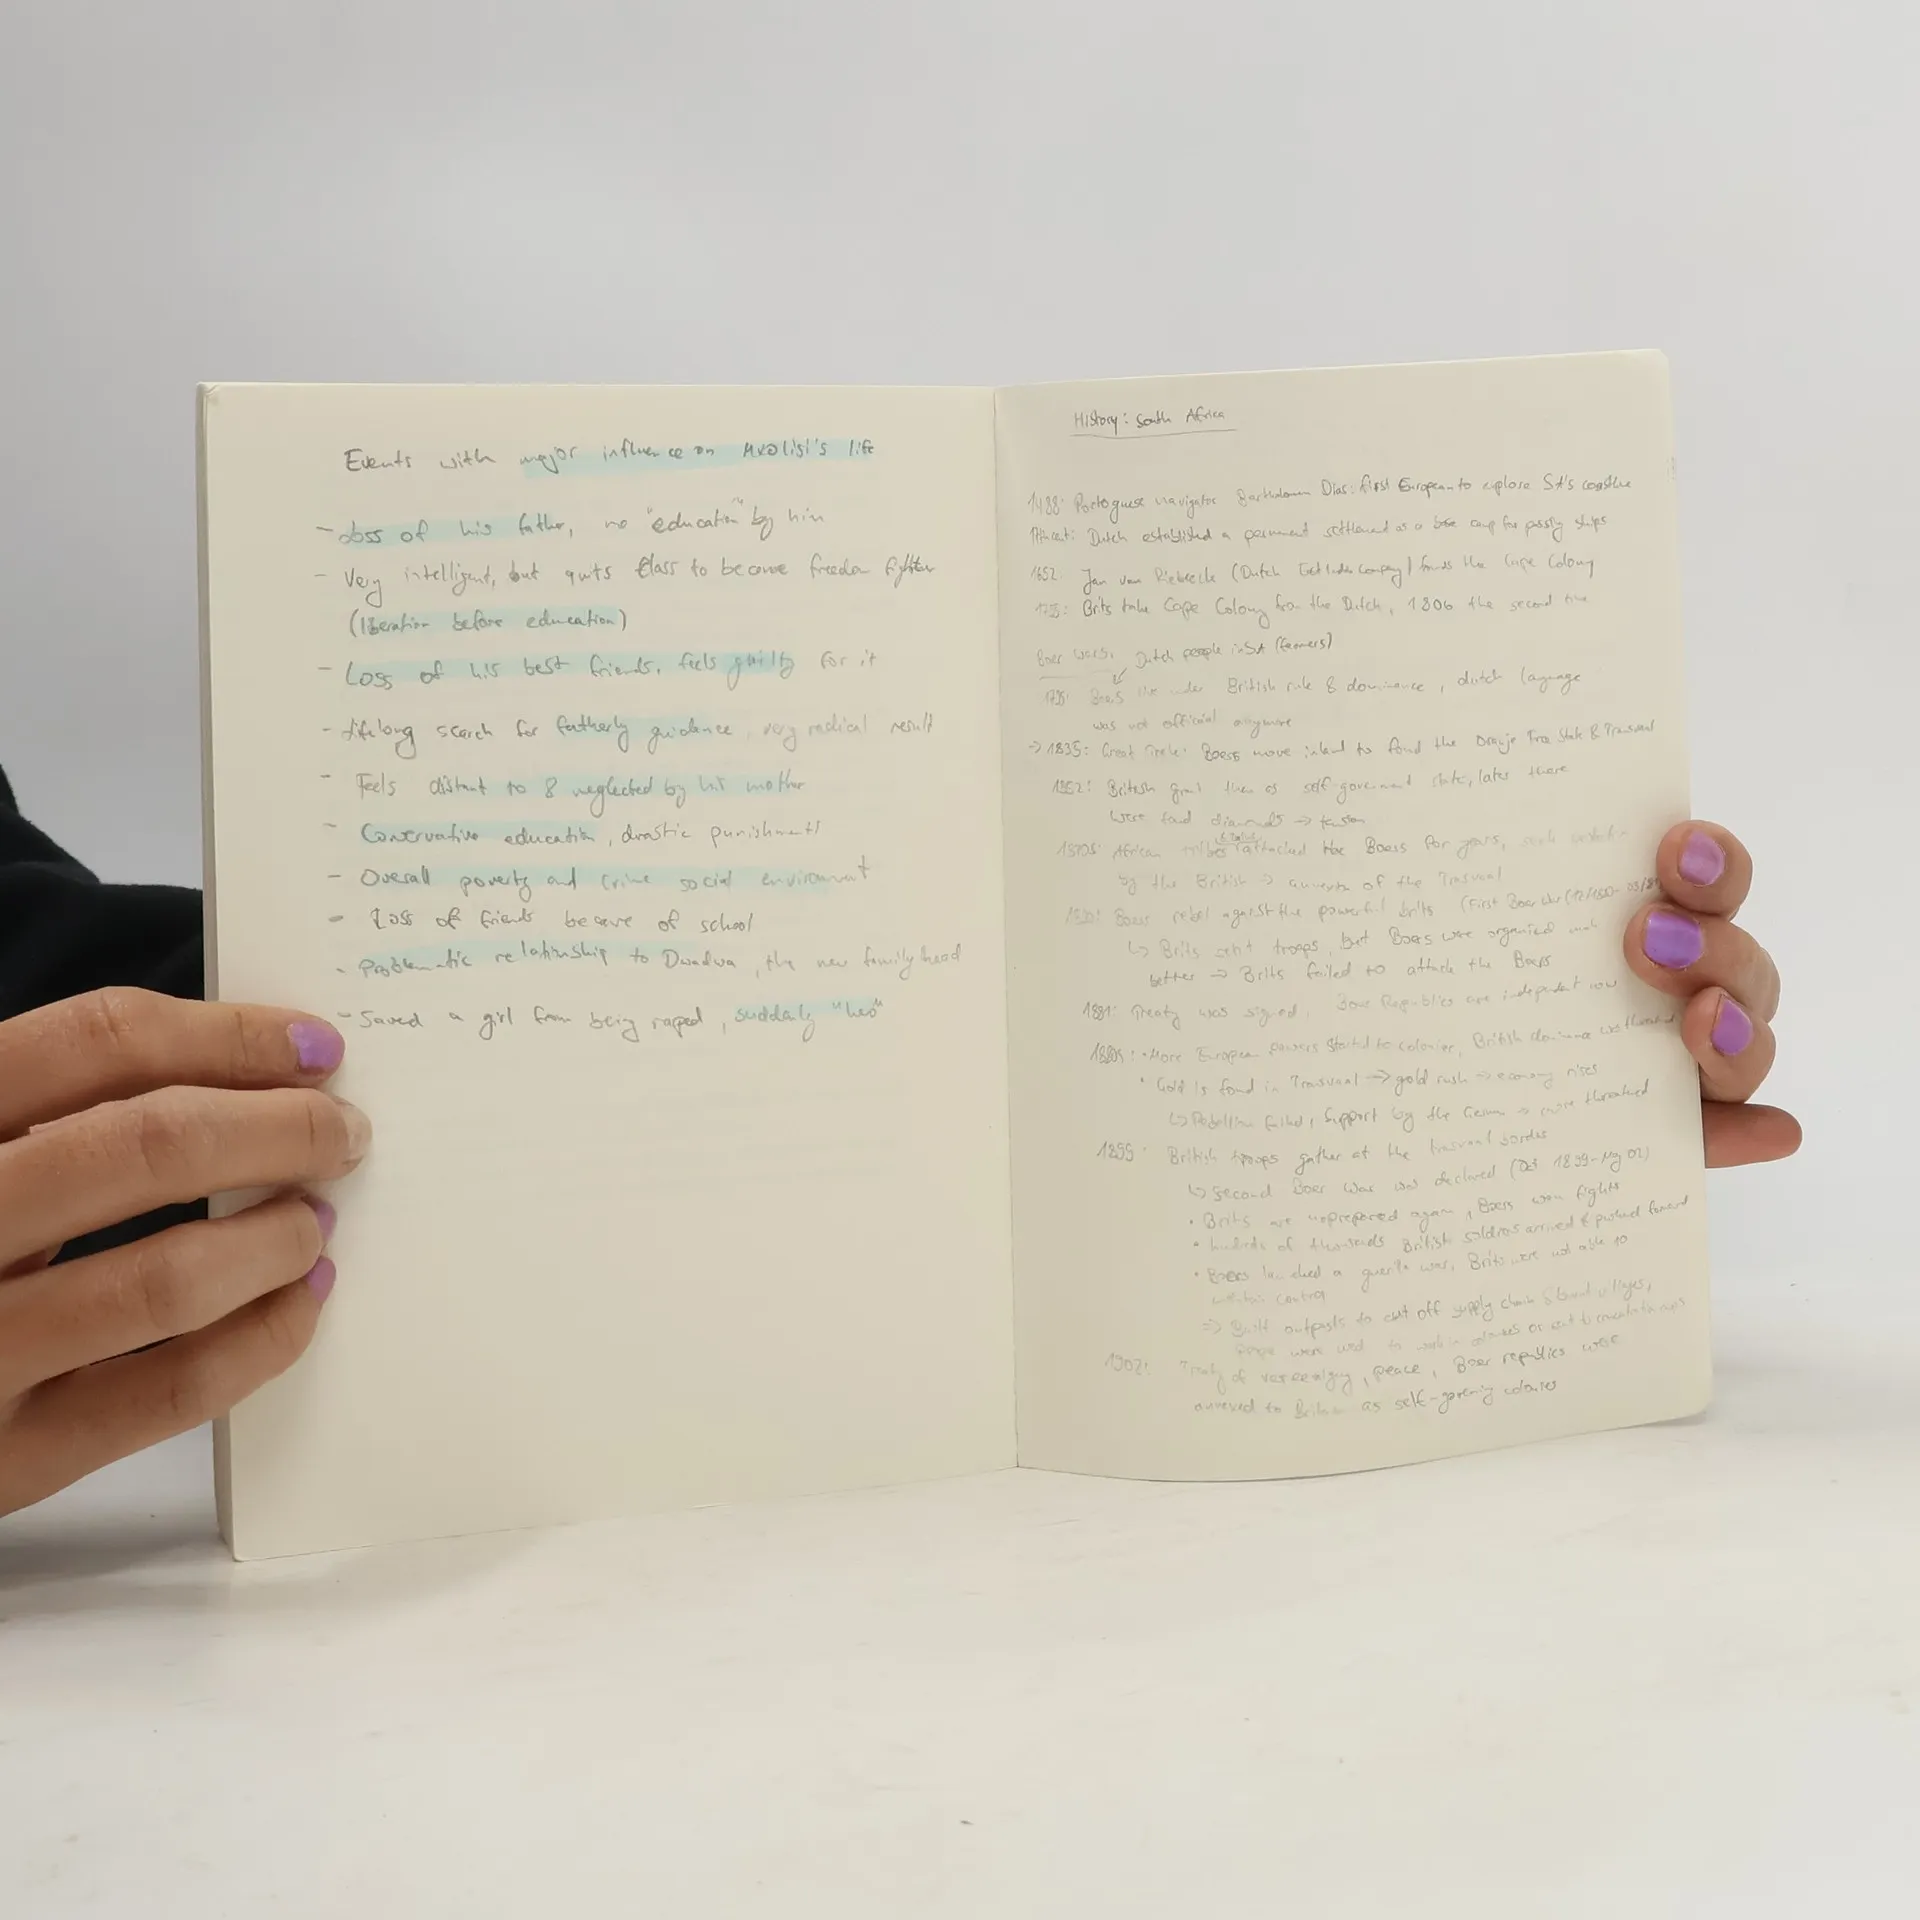 Events with major influence on Mxolisi's life
- Loss of his father, no "education" by him
- Very intelligent, but quits class to become freedom fighter
(liberation before education)
- Loss of his best friends, feels guilty for it
- Lifelong search for fatherly guidance, very radical result
- Feels distant to & neglected by his mother
- Conservative education, drastic punishments
- Overall poverty and crime social environment
- Loss of friends because of school
- Problematic relationship to Dwadwa, the new family head
- Saved a girl from being raped, suddenly "hero"
History: South Africa
1488: Portoguese navigator Bartholomeu Dias: first European to explore SA's coastline
17th cent: Dutch established a permanent settlement as a base camp for passing ships
1652: Jan van Riebeeck (Dutch East India Company) founds the Cape Colony
1795: Brits take Cape Colony from the Dutch, 1806 the second time
Boer wars: Dutch people in SA (farmers)
1795: Boers live under British rule & dominance, dutch language
was not official anymore
-> 1835: Great Treck: Boers move inland to found the Oranje Free State & Transvaal
1852: British grant them as self-government state, later there
were found diamonds -> tension
1870s: African tribes attacked the Boers for years, seek
by the British -> annexion of the Transvaal
1880: Boers rebel against the powerful brits (First Boer War (12/1880-03/81)
↳ Brits sent troops, but Boers were organized much
better -> Brits failed to attack the Boers
1881: Treaty was signed, Boer Republics are independent now
1880s: • More European powers started to colonier, British dominance was threatened
• Gold is found in Transvaal -> gold rush -> economy rises
↳ Rebellion failed, support by the German -> more threatened
1899: British troops gather at the Transvaal border
↳ Second Boer War was declared (Oct 1899-May 02)
• Brits are unprepared again, Boers won fights
• hundreds of thousands British soldiers arrived & pushed forward
• Boers launched a guerilla war, Brits were not able to
maintain control
=> Built outposts to cut off supply chain & burnt villages,
People were used to work in or sent to
1902: Treaty of Vereeniging, peace, Boer republics were
annexed to Britain as self-governing colonies